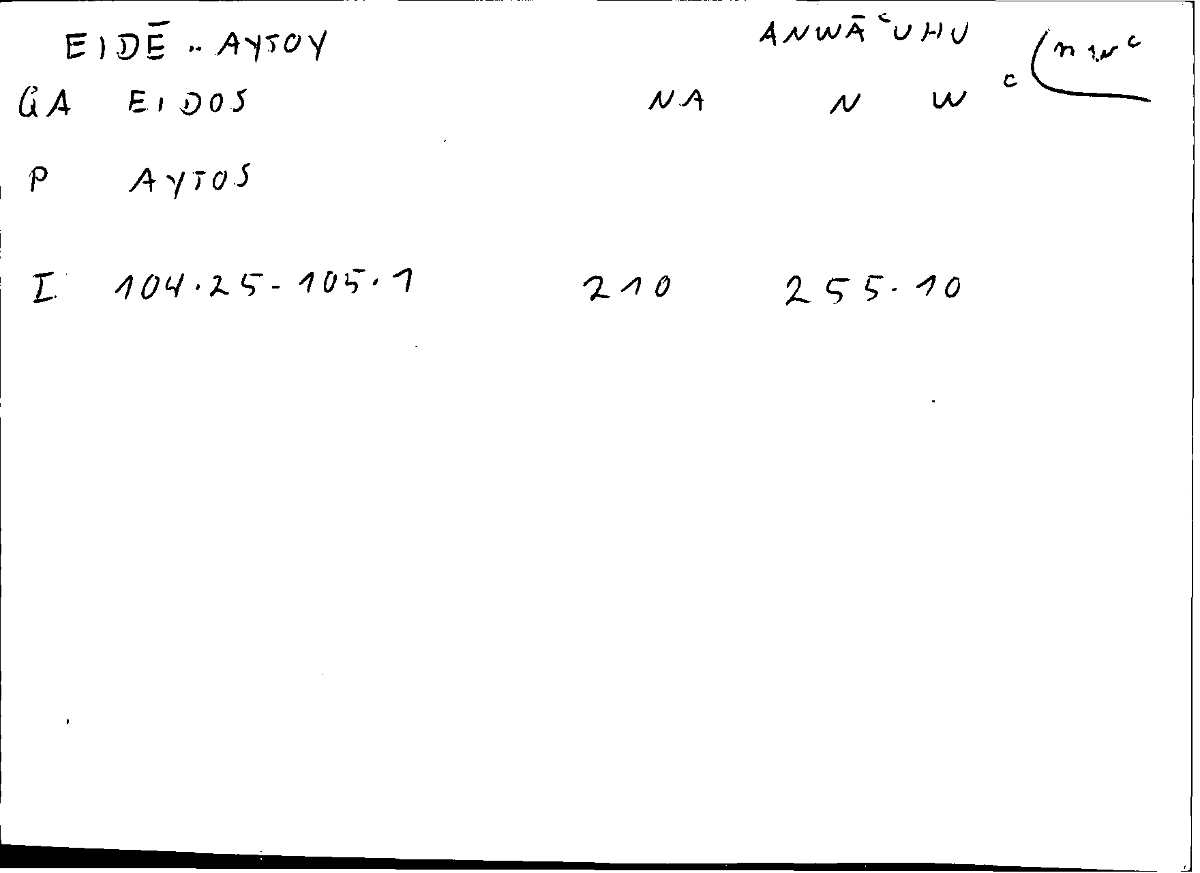 EIDĒ .. AYTOY ANWĀ ͨ UHU
GA EIDOS NA N W c n w c
P AYTOS
I 104.25-105.1 210 255.10